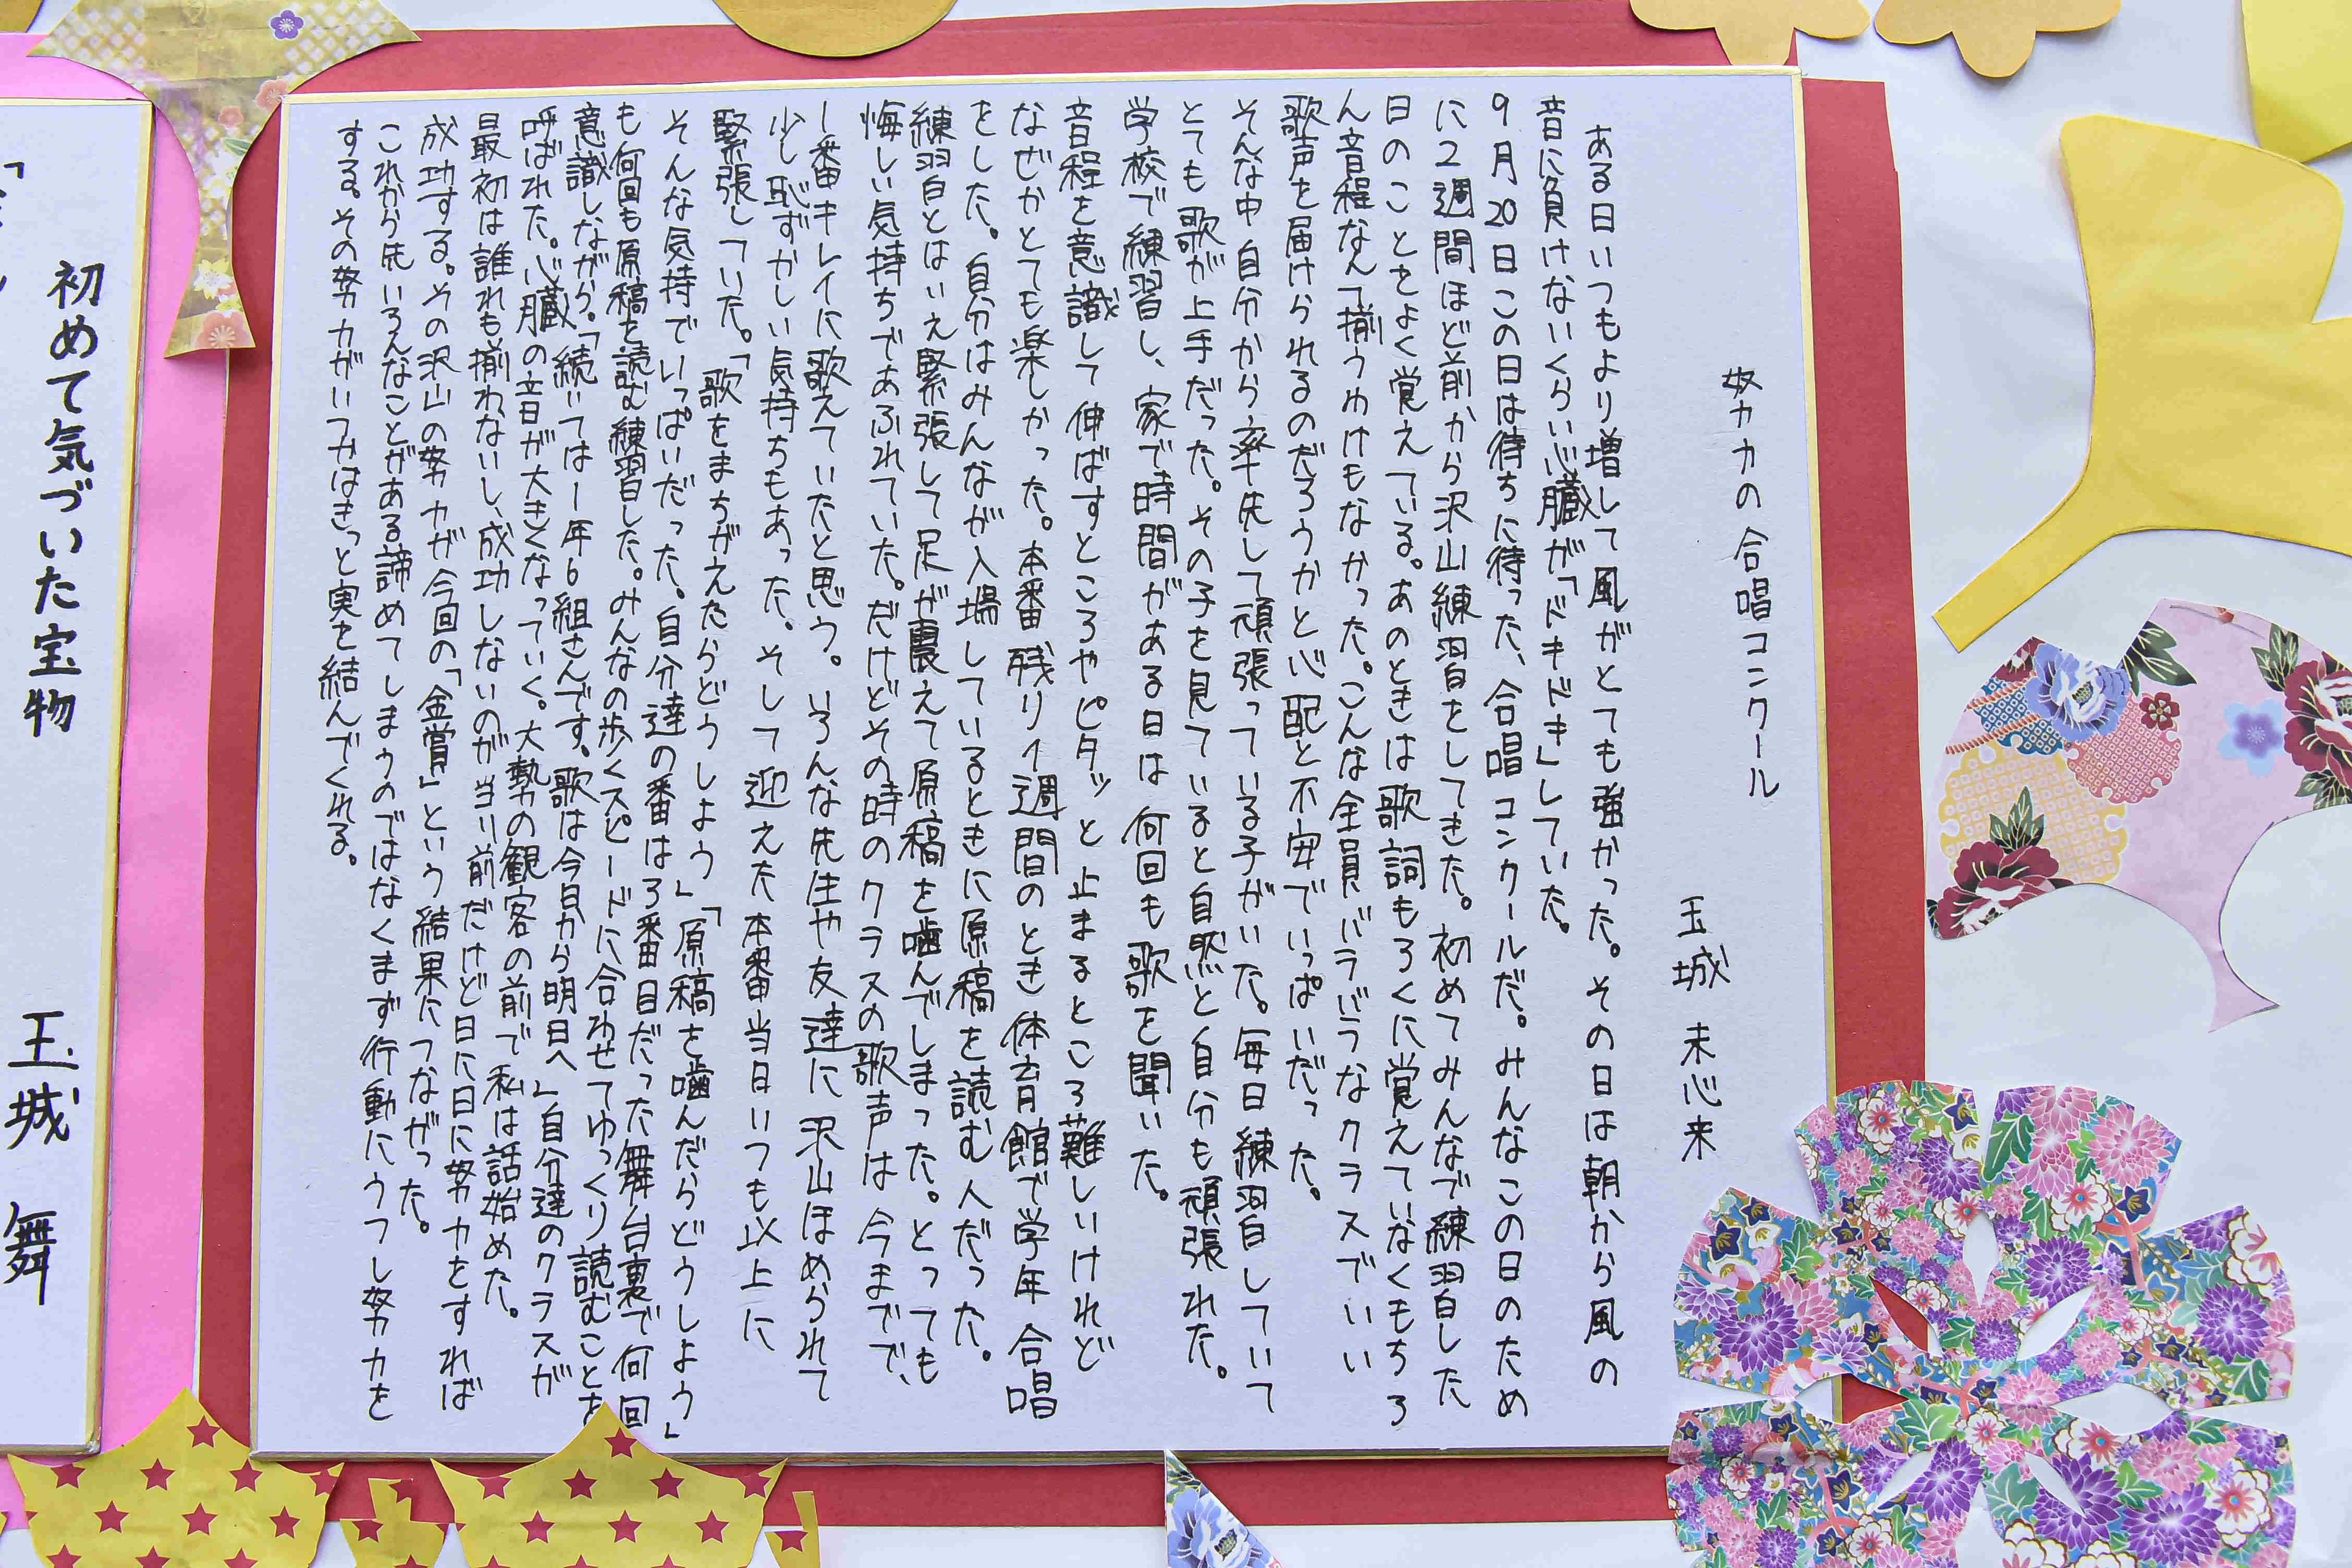 努力の合唱コンクール
玉城 未心来
ある日いつもより増して風がとても強かった。その日は朝から風の
音に負けないくらい心臓が「ドキドキ」していた。
9月20日この日は待ちに待った、合唱コンクールだ。みんなこの日のため
に2週間ほど前から沢山練習をしてきた。初めてみんなで練習した
日のことをよく覚えている。あのときは歌詞もろくに覚えていなくもちろ
ん音程なんて揃うわけもなかった。こんな全員バラバラなクラスでいい
歌声を届けられるのだろうかと心配と不安でいっぱいだった。
そんな中自分から率先して頑張っている子がいた。毎日練習していて
とても歌が上手だった。その子を見ていると自然と自分も頑張れた。
学校で練習し、家で時間がある日は何回も歌を聞いた。
音程を意識して伸ばすところやピタッと止まるところ難しいけれど
なぜかとても楽しかった。本番残り1週間のとき体育館で学年合唱
をした。自分はみんなが入場しているときに原稿を読む人だった。
練習とはいえ緊張して足が震えて原稿を噛んでしまった。とっても
悔しい気持ちであふれていた。だけどその時のクラスの歌声は今までで、
1番キレイに歌えていたと思う。いろんな先生や友達に沢山ほめられて
少し恥ずかしい気持ちもあった。そして迎えた本番当日いつも以上に
緊張していた。「歌をまちがえたらどうしよう」「原稿を噛んだらどうしよう」
そんな気持でいっぱいだった。自分達の番は3番目だった舞台裏で何回
も何回も原稿を読む練習した。みんなの歩くスピードに合わせてゆっくり読むことを
意識しながら。「続いては1年6組さんです。歌は今日から明日へ」自分達のクラスが
呼ばれた。心臓の音が大きくなっていく。大勢の観客の前で私は話始めた。
最初は誰れも揃わないし、成功しないのが当り前だけど日に日に努力をすれば
成功する。その沢山の努力が今回の「金賞」という結果につながった。
これから先いろんなことがある諦めてしまうのではなくまず行動にうつし努力を
する。その努力がいつかはきっと実を結んでくれる。
初めて気づいた宝物
玉城 舞